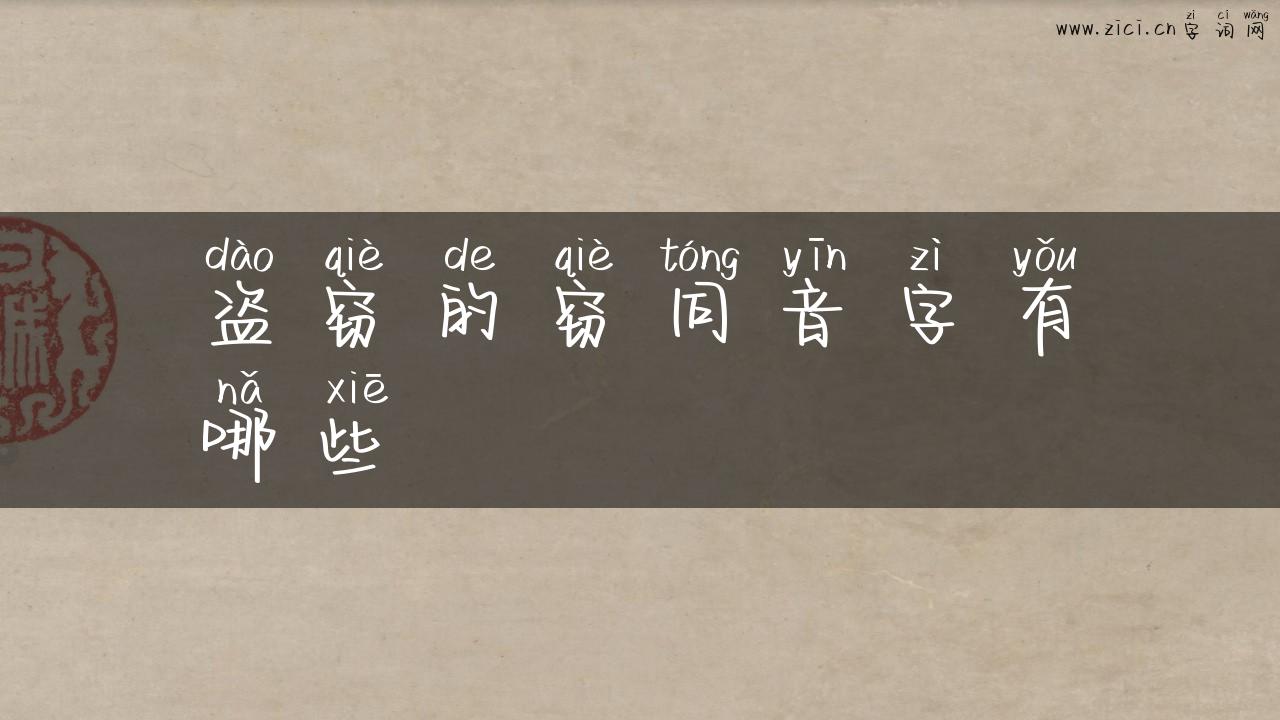 zì cí wǎng
www.zici.cn 字 词 网
dào qiè de qiè tóng yīn zì yǒu
盗 窃 的 窃 同 音 字 有
nǎ xiē
哪 些